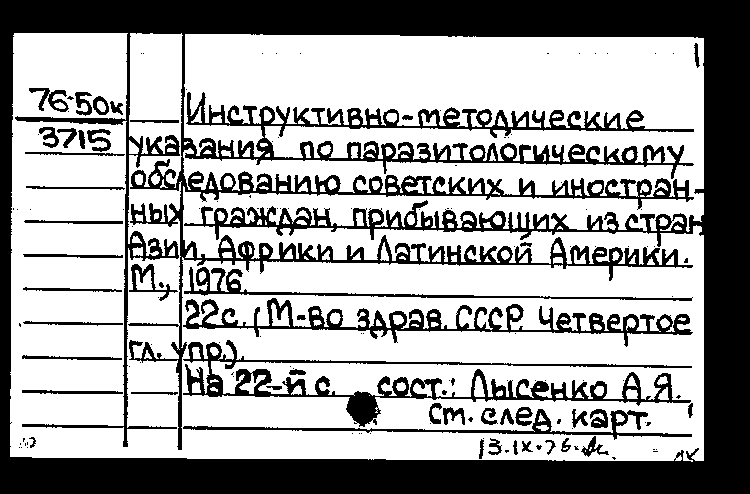 76-50к
3715
Инструктивно-методические
указания по паразитологическому
обследованию советских и иностран-
ных граждан, прибывающих из стран
Азии, Африки и Латинской Америки.
М., 1976.
22с. (М-во здрав. СССР. Четвертое
гл. упр.).
На 22-й с. сост.: Лысенко А.Я.
См. след. карт.
13.IX.76.